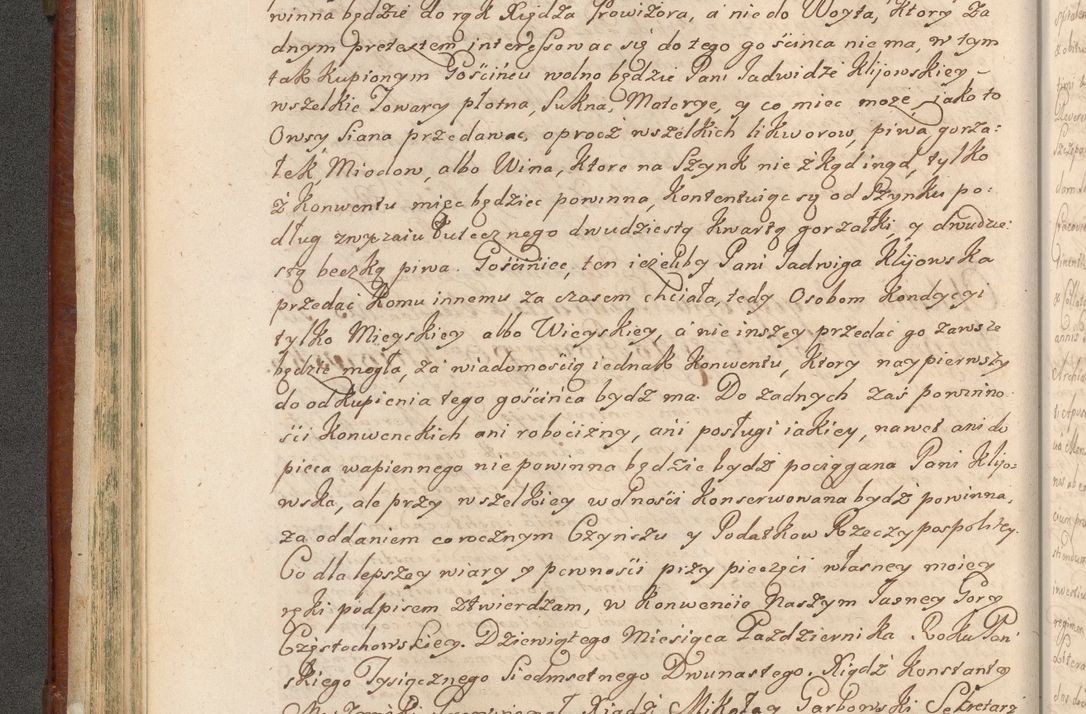 winna będzie do rąk Xiędza Prowizora, a nie do Woyta, Ktory Za
dnym pretextem interessować się do tego gościnca nie ma, w tym
tak Kupionym Gościńcu wolno będzie Pani Jadwidze Klijowskiey
wszelkie Towary płotna, Sukna, Materye, y co miec może, jako to
Owsy Siana przedawac, oprocz wszelkich likworow, piwa, gorza:
łek, Miodow, albo Wina, Ktore na Szynk nie zkądinąd, tylko
z Konwentu mięć będziec powinna, Kontentuiąc się od Szynku po:
dług zwyczaiu tutecznego dwudziestą Kwartą gorzałki, y dwudzie:
stą beczką piwa. Gościniec, ten ieżeliby Pani Jadwiga Klijowska
przedać Komu innemu za czasem chciała, tedy Osobom Kondycyi
tylko Mieyskiey albo Wieyskiey, a nie inszey przedać go zawsze
będzie mogła, za wiadomością iednak Konwentu, Ktory naypierwszy
do odkupienia tego gościńca bydz ma. Do zadnych zaś powinno
ści Konwenckich ani robocizny, ani posługi iakiey, nawet ani do
pieca wapiennego nie powinna będzie bydź pociągana Pani Klijo:
wska, ale przy wszelkiey wolności Konserwowana bydź powinna,
za oddaniem corocznym Czynszu y Podatkow Rzeczypospolitey.
Co dla lepszey wiary y pewności przy pieczęci własney moiey
ręki podpisem ztwierdzam, w Konwencie Naszym Jasney Gory
Częstochowskiey. Dziewiątego Miesiąca Pazdziernika. Roku Pań
skiego Tysiącznego Siedmsetnego Dwunastego. Xiądz Konstanty
Xiądz Mikołay Garbowski Sekretarz